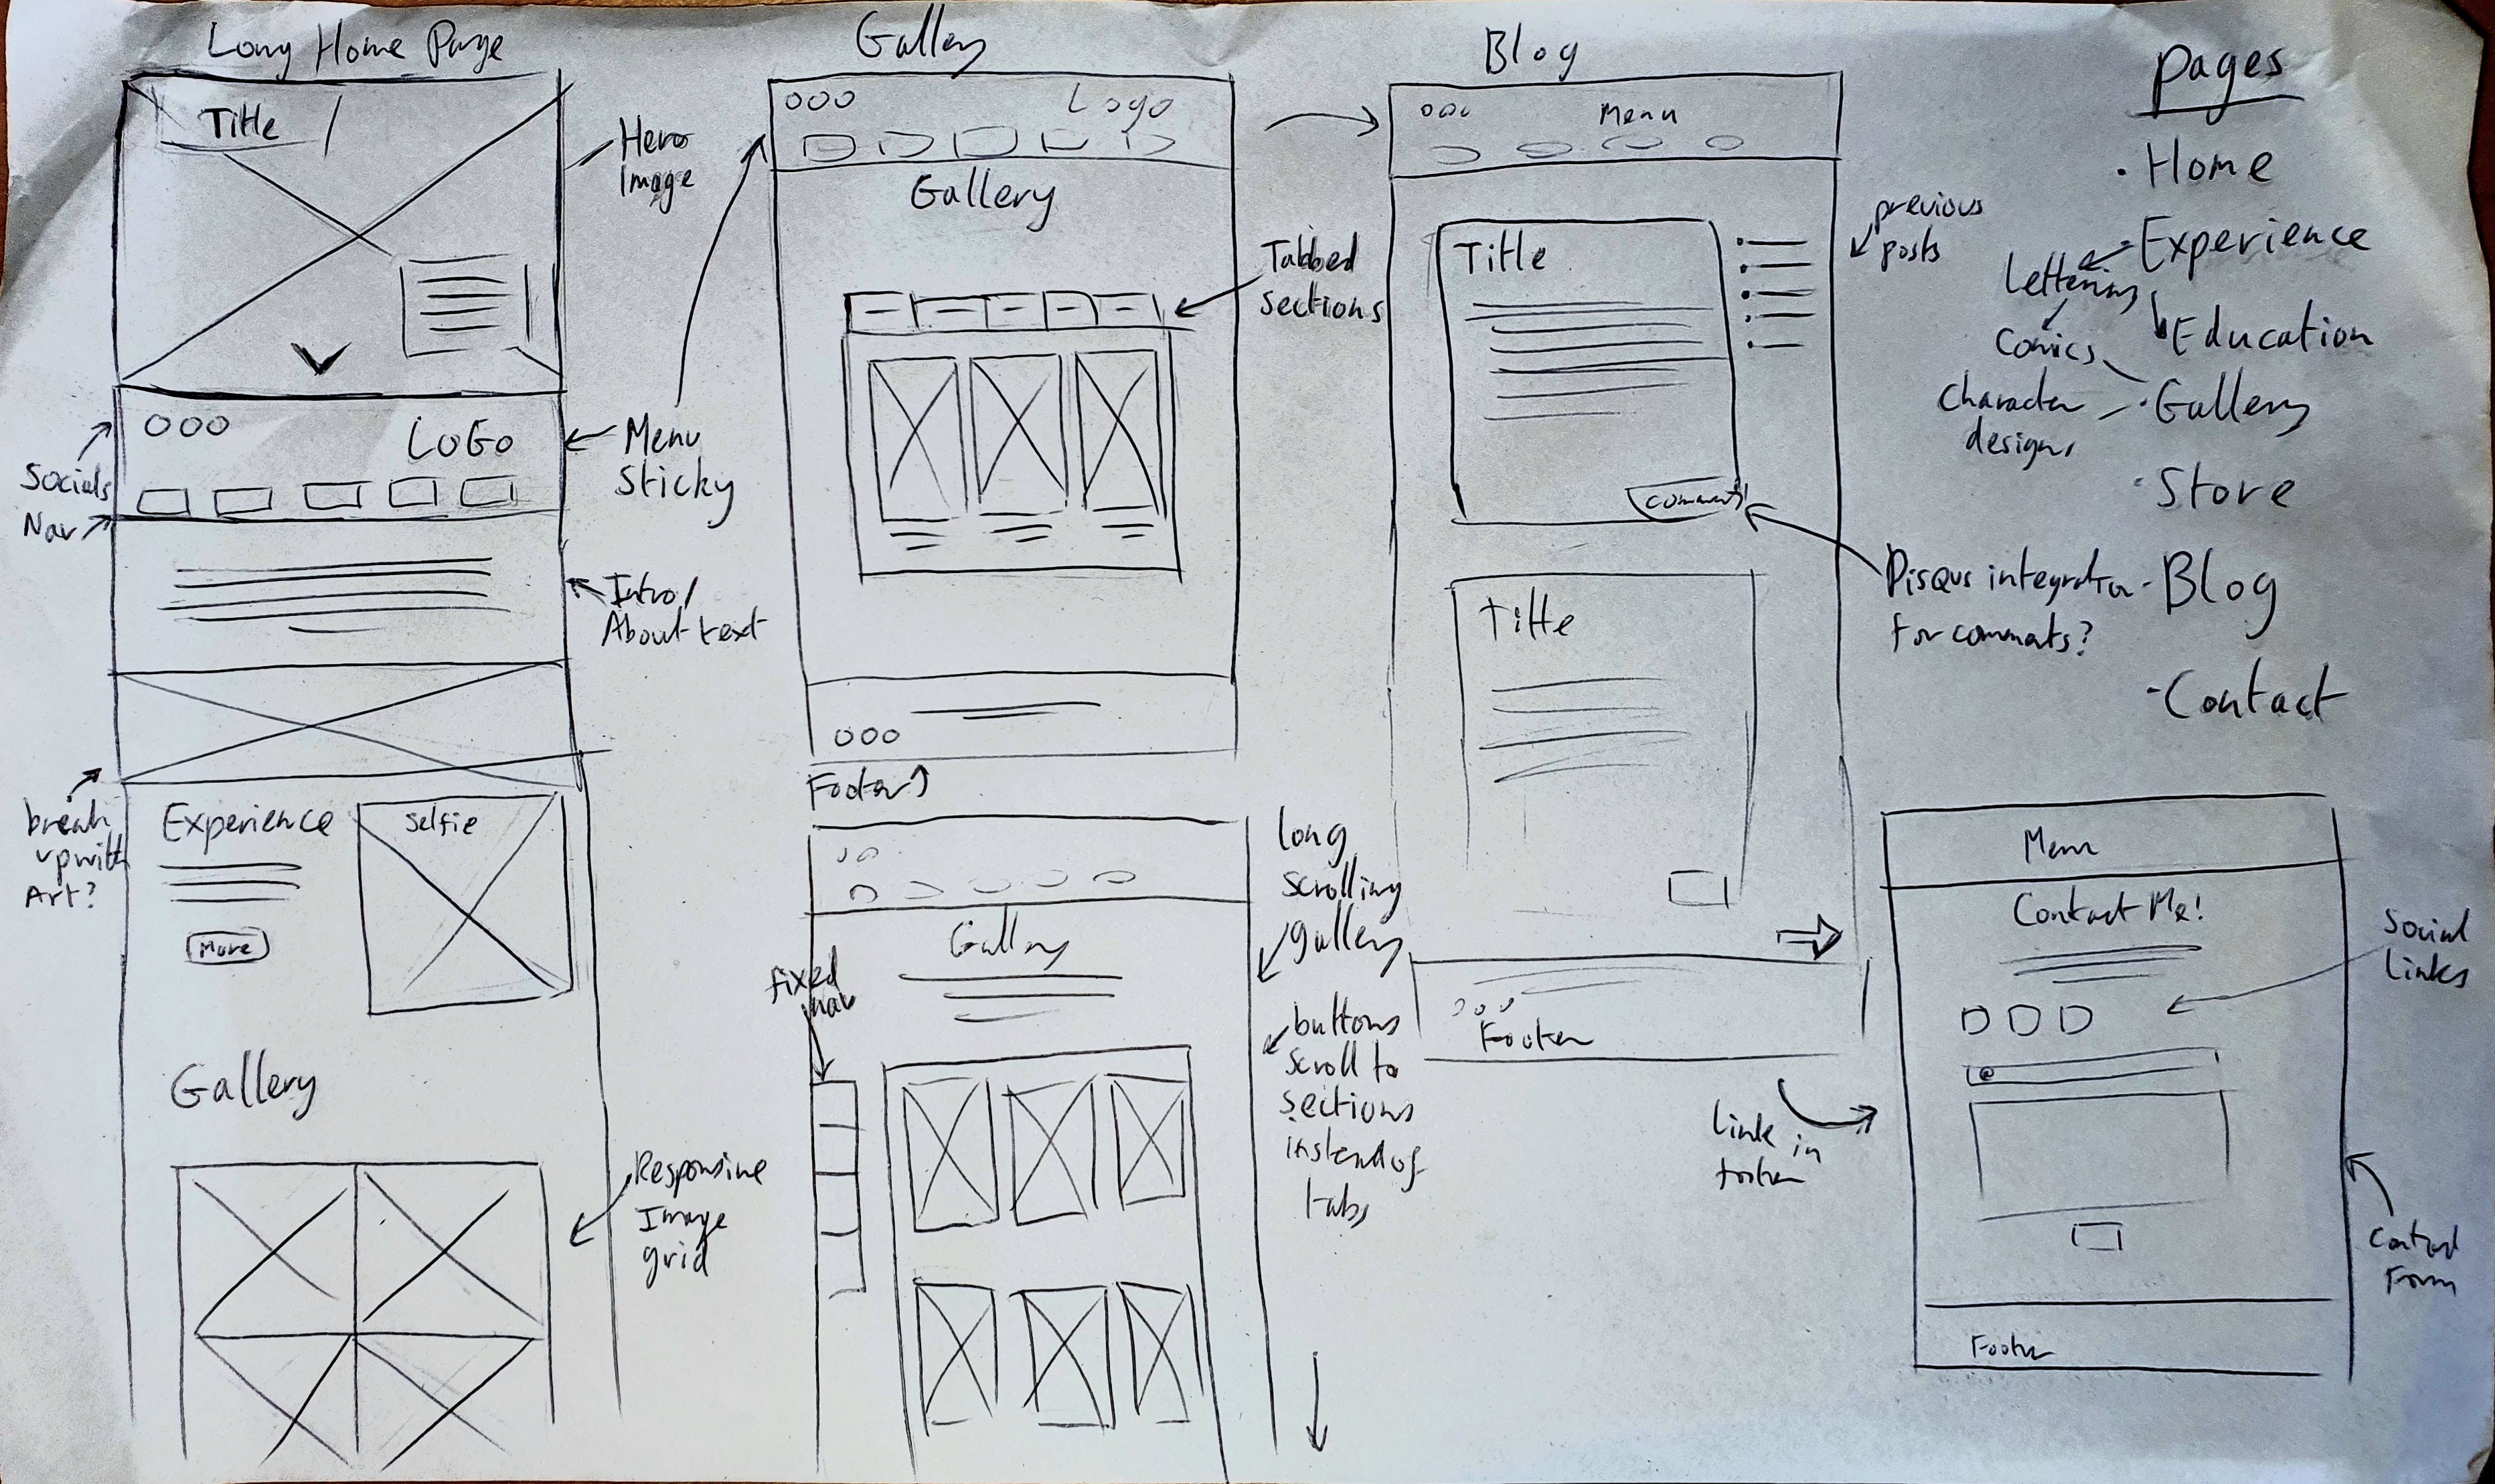 Long Home Page
Title
Hero
Image
LOGO
Socials
Nav
Menu
Sticky
Intro/
About text
break
up with
Art?
Experience
Selfie
More
Gallery
Responsive
Image
grid
Gallery
Logo
Gallery
Tabbed
sections
Footer
Gallery
fixed
nav
long
scrolling
gallery
buttons
scroll to
sections
instead of
tabs
Blog
Menu
Title
previous
posts
comments
Disqus integration
for comments?
Title
Footer
Link in
footer
pages
· Home
· Experience
Lettering
Education
Comics
Character
designs
· Gallery
· Store
· Blog
· Contact
Menu
Contact Me!
Social
Links
@
Contact
Form
Footer